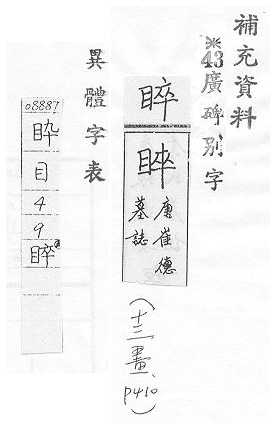 補充資料
※43廣碑別字
睟
唐崔德
墓誌
(十三畫、p410)
異體字表
08887
目
4
9
睟